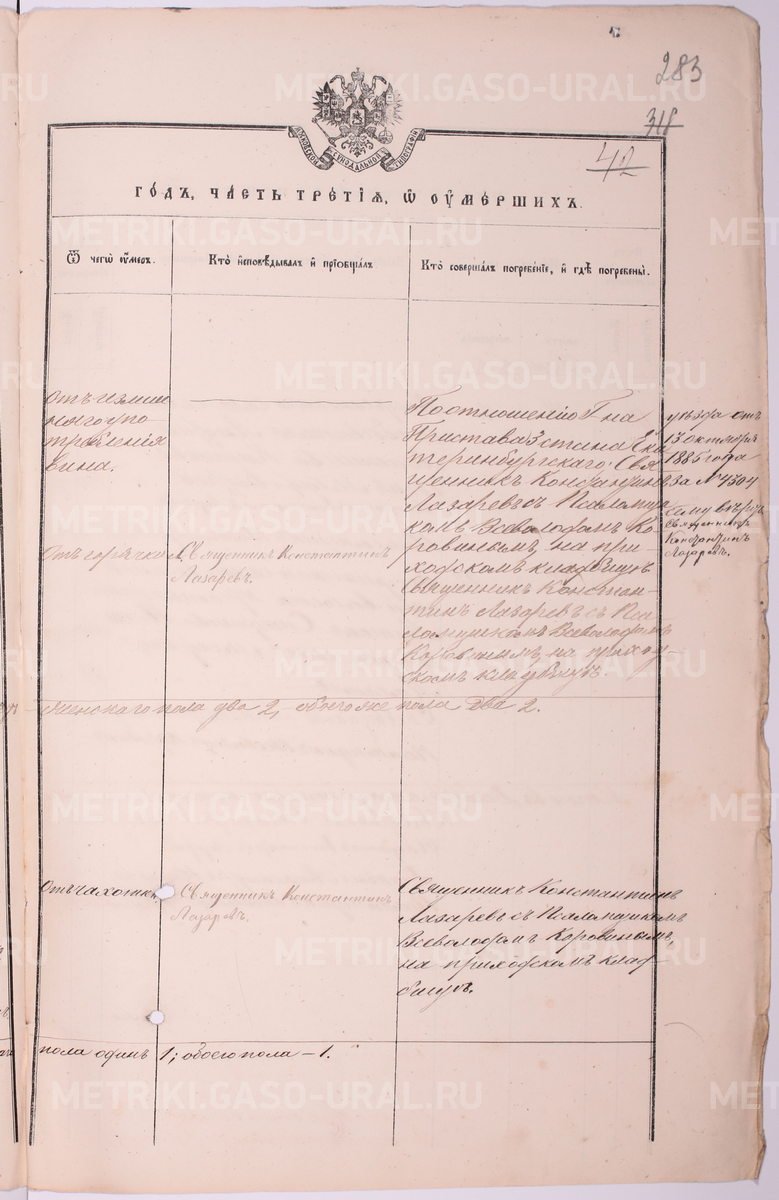 283
318
42
МОСКОВСКОЙ СУНОДАЛЬНОЙ ТИПОГРАФІИ
ГОДЪ, ЧАСТЬ ТРЕТІЯ, Ѿ ОУМЕРШИХЪ.
Ѿ чегѡ оумеръ.
Кто исповѣдывалъ и пріобщалъ
Кто совершалъ погребеніе, и гдѣ погребены.
Отъ излиш
няго упо
требленія
вина.
По отношенію Г на
Пристава 3 стана Ека
теринбургскаго: Свя
щенникъ Константинъ
Лазаревъ съ Псаломщи
комъ Всеволодомъ Ко
ровинымъ, на при-
ходскомъ кладбищѣ
уѣзда отъ
13 октября
1885 года
за № 4504
Священникъ
Константинъ
Лазаревъ.
Отъ горячки
Священникъ Константинъ
Лазаревъ.
Священникъ Констан-
тинъ Лазаревъ съ Пса
ломщикомъ Всеволодомъ
Коровинымъ, на приход-
скомъ кладбищѣ.
женскаго пола два 2, обоего же пола два 2.
Отъ чахотки
Священникъ Константинъ
Лазаревъ.
Священникъ Константинъ
Лазаревъ съ Псаломщикомъ
Всеволодомъ Коровинымъ,
на приходскомъ клад-
бищѣ.
пола одинъ 1; обоего пола – 1.
METRIKI.GASO-URAL.RU